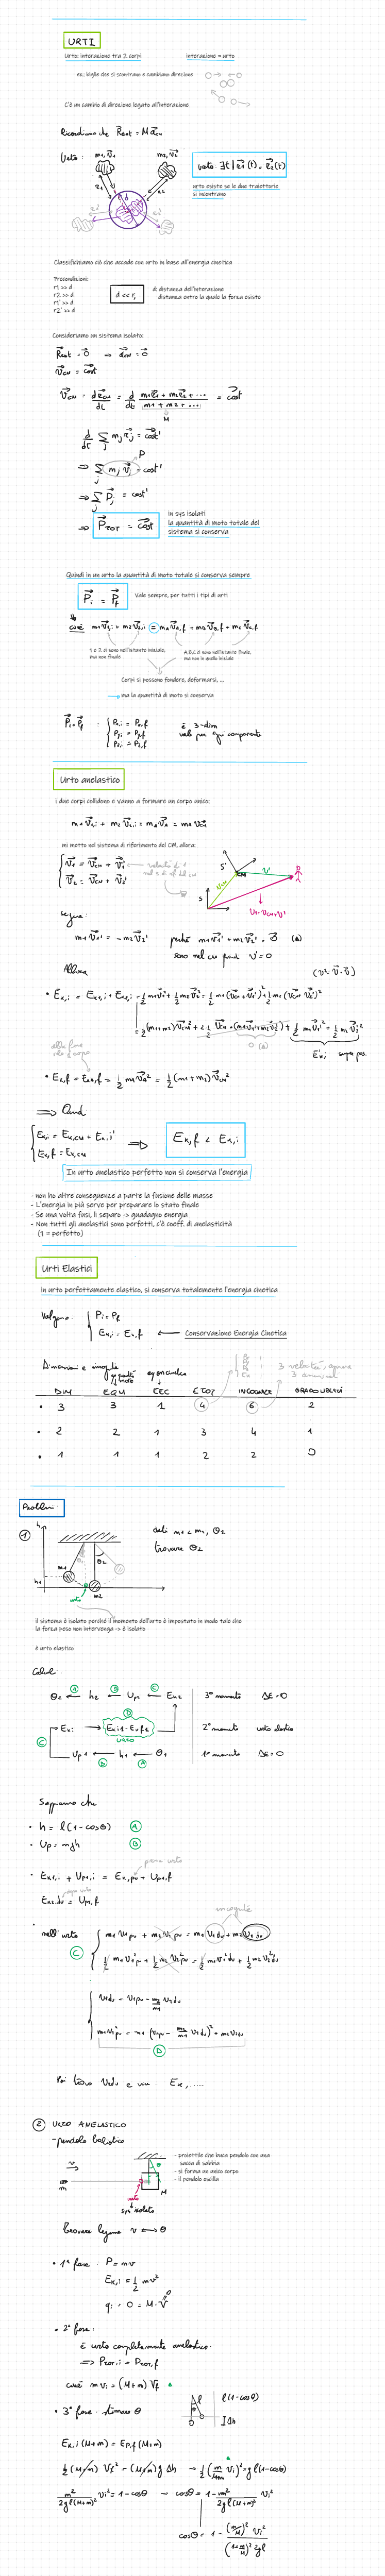 URTI
Urto: interazione tra 2 corpi
interazione = urto
es.: biglie che si scontrano e cambiano direzione
C'è un cambio di direzione legato all'interazione
Ricordiamo che R⃗est = M a⃗CM
Urto:
m1, v⃗1
m2, v⃗2
urto ∃t | r⃗1(t) = r⃗2(t)
urto esiste se le due traiettorie
si incontrano
Classifichiamo ciò che accade con urto in base all'energia cinetica
Precondizioni:
r1 >> d
r2 >> d
r1' >> d
r2' >> d
d << ri
d: distanza dell'interazione
distanza entro la quale la forza esiste
Consideriamo un sistema isolato:
R⃗est = 0⃗ ⇒ a⃗CM = 0⃗
v⃗CM = cost
v⃗CM = dr⃗CM/dt = d/dt (m1r⃗1 + m2r⃗2 + ...)/(m1 + m2 + ...) = cost
M
d/dt ∑j mj r⃗j = cost'
P
⇒ ∑j mj v⃗j = cost'
⇒ ∑j P⃗j = cost'
⇒ P⃗TOT = cost
in sys isolati
la quantità di moto totale del
sistema si conserva
Quindi in un urto la quantità di moto totale si conserva sempre
P⃗i = P⃗f
Vale sempre, per tutti i tipi di urti
cioè m1v⃗1,i + m2v⃗2,i = mAv⃗A,f + mBv⃗B,f + mCv⃗C,f
1 e 2 ci sono nell'istante iniziale,
ma non finale
A,B,C ci sono nell'istante finale,
ma non in quello iniziale
Corpi si possono fondere, deformarsi, ...
ma la quantità di moto si conserva
P⃗i = P⃗f :
Px,i = Px,f
Py,i = Py,f
Pz,i = Pz,f
è 3-dim
vale per ogni componente
Urto anelastico
i due corpi collidono e vanno a formare un corpo unico:
m1v⃗1,i + m2v⃗2,i = mAv⃗A = mA v⃗CM
mi metto nel sistema di riferimento del CM, allora:
v⃗1 = v⃗CM + v⃗1'
v⃗2 = v⃗CM + v⃗2'
velocità di 1
nel s. di rif. del CM
S'
CM
v'
S
vCM
v = vCM + v'
segue:
m1v⃗1' = - m2v⃗2'
perché m1v⃗1' + m2v⃗2' = 0⃗ (a)
sono nel CM quindi v' = 0
Allora
(v² = v⃗·v⃗)
• Ek,i = Ek1,i + Ek2,i = ½ m1v⃗1² + ½ m2v⃗2² = ½ m1(v⃗CM + v⃗1')² + ½ m2(v⃗CM + v⃗2')²
= ½(m1+m2)v⃗CM² + 2·½ v⃗CM·(m1v⃗1' + m2v⃗2') + ½ m1v⃗1'² + ½ m2v⃗2'²
0 (a)
E'k,i
alla fine
c'è 1 corpo
• Ek,f = EkA,f = ½ mv⃗A² = ½ (m1+m2)v⃗CM²
⇒ Quindi
Ek,i = Ek,CM + Ek,i'
Ek,f = Ek,CM
⇒
Ek,f < Ek,i
In urto anelastico perfetto non si conserva l'energia
- non ho altre conseguenze a parte la fusione delle masse
- L'energia in più serve per preparare lo stato finale
- Se una volta fusi, li separo -> guadagno energia
- Non tutti gli anelastici sono perfetti, c'è coeff. di anelasticità
(1 = perfetto)
Urti Elastici
In urto perfettamente elastico, si conserva totalmente l'energia cinetica
Valgono:
Pi = Pf
Ek,i = Ek,f
Conservazione Energia Cinetica
Dimensioni e incognite
3 velocità, oppure
DIM EQM CEC ETOT INCOGNITE GRADO LIBERTÀ
• 3 3 1 4 6 2
• 2 2 1 3 4 1
• 1 1 1 2 2 0
Problemi:
1
h
h1
m1
θ1
θ2
m2
urto
dati m1 < m2, θ1
trovare θ2
il sistema è isolato perché il momento dell'urto è impostato in modo tale che
la forza peso non intervenga -> è isolato
è urto elastico
Calcoli:
θ2 ← h2 ← Up2 ← Ek2
A B C
3° momento ΔE = 0
D
Eki → Ek,i1 = Ek,f2
URTO
2° momento urto elastico
C
Up1 ← h1 ← θ1
B A
1° momento ΔE = 0
Sappiamo che
• h = l(1 - cosθ) A
• Up = mgh B
prima urto
• Ek1,i + Up1,i = Ek,pu + Up1,f
dopo urto
Ek2,du = Up2,f
incognite
• nell'urto
C
m1v1pu + m2v2pu = m1v1du + m2v2du
½ m1v1²pu + ½ m2v2²pu = ½ m1v1²du + ½ m2v2²du
v1du = v1pu - m2/m1 v2du
m1v1²pu = m1 (v1pu - m2/m1 v2du)² + m2v2²du
D
Poi trovo v2du e via: Ek, .....
2 URTO ANELASTICO
- pendolo balistico
v
m
θ
M
urto
sys isolato
- proiettile che buca pendolo con una
sacca di sabbia
- si forma un unico corpo
- il pendolo oscilla
trovare legame v ⟷ θ
• 1ª fase: P = mv
Ek,i = ½ mv²
qi = 0 = M·V
0
• 2ª fase:
è urto completamente anelastico:
⇒ Ptot,i = Ptot,f
cioè m vi = (M+m) vf
• 3ª fase: stimiamo θ
l
l(1-cosθ)
Δh
Ek,i(M+m) = Ep,f(M+m)
½ (M+m) vf² = (M+m) g Δh → ½ (m/(M+m) vi)² = g l(1-cosθ)
m²/(2gl(M+m)²) vi² = 1 - cosθ → cosθ = 1 - m²/(2gl(M+m)²) vi²
cosθ = 1 - (m/M)² vi² / ((1 + m/M)² 2gl)